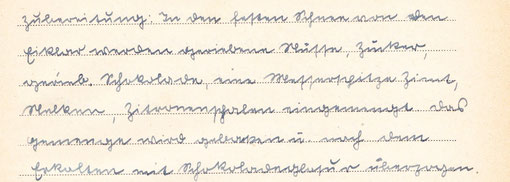 Zubereitung: In den festen Schnee von den
Eiklar werden geriebene Nüsse, Zucker,
gerieb. Schokolade, eine Messerspitze Zimt,
Nelken, Zitronenschalen eingemengt das
Gemenge wird gebaken u nach dem
Erkalten mit Schokoladeglasur überzogen.